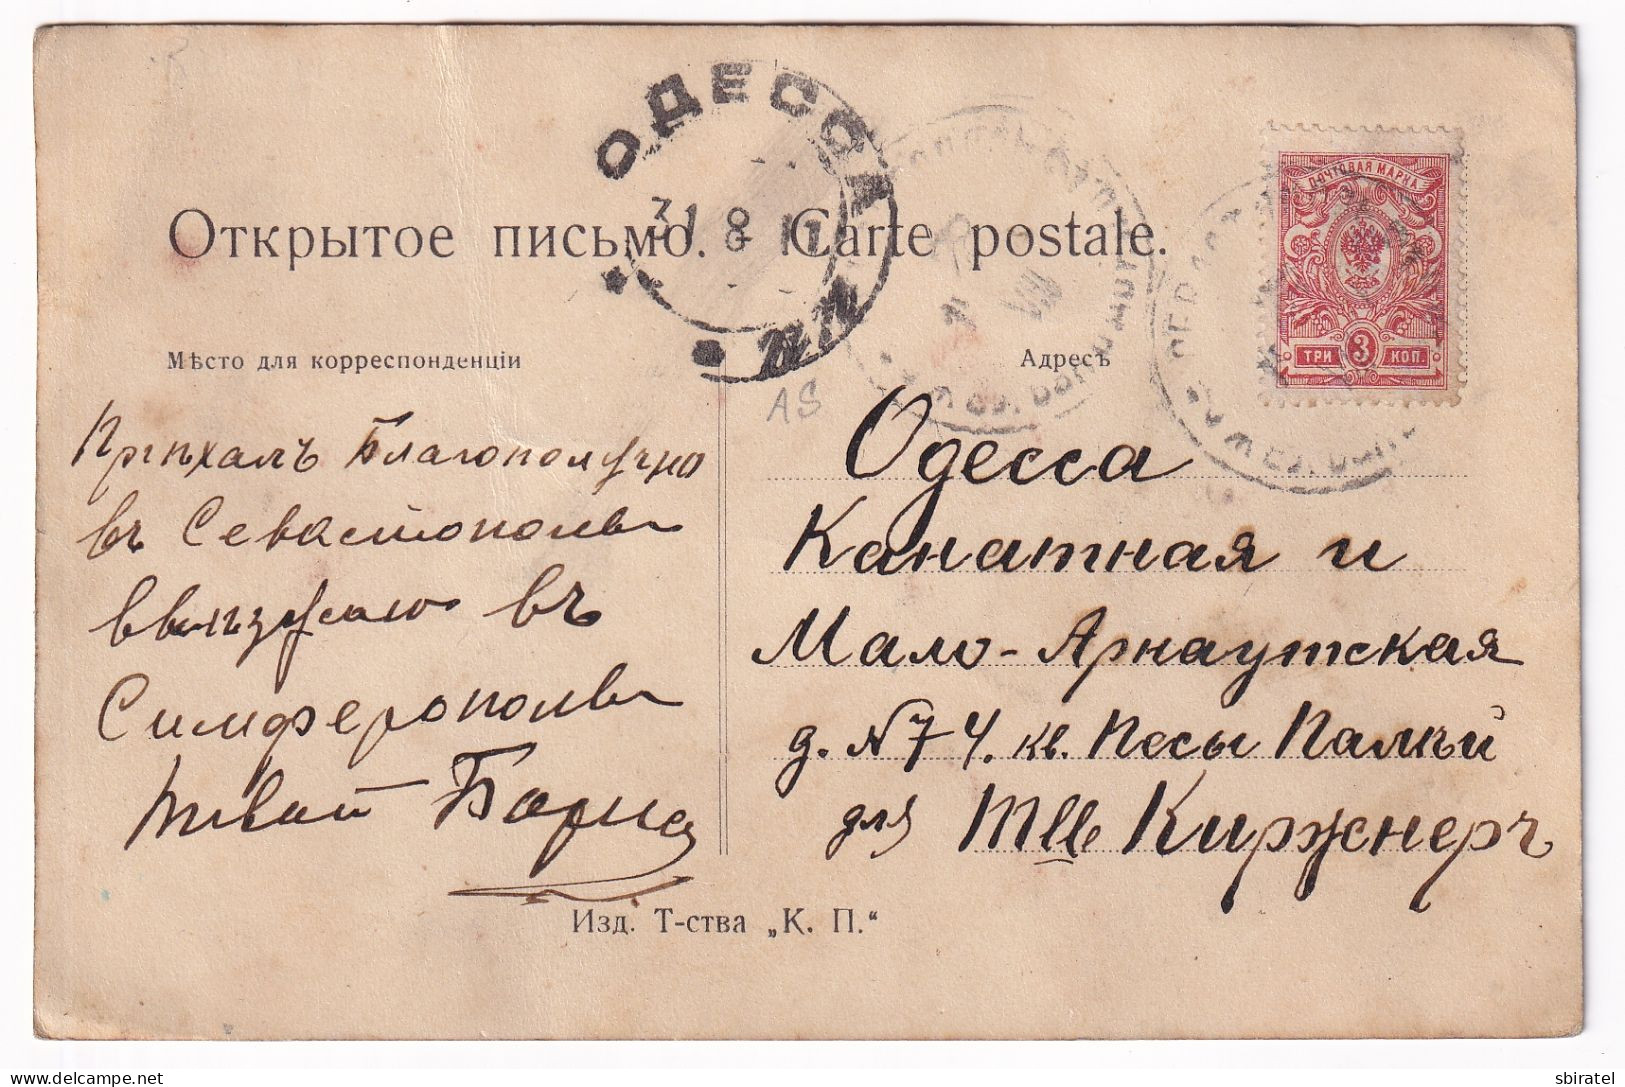 ОДЕССА
31 8 11
Открытое письмо. — Carte postale.
ПОЧТОВАЯ МАРКА
ТРИ 3 КОП.
Мѣсто для корреспонденціи
Адресъ
AS
Пріѣхалъ Благополучно
въ Севастополь
выѣзжаю въ
Симферополь
твой Борис
Одесса
Канатная и
Мало-Арнаутская
д. № 74. кв. Песы Палѣй
для Mlle Киржнеръ
Изд. Т-ства „К. П.“
sbiratel